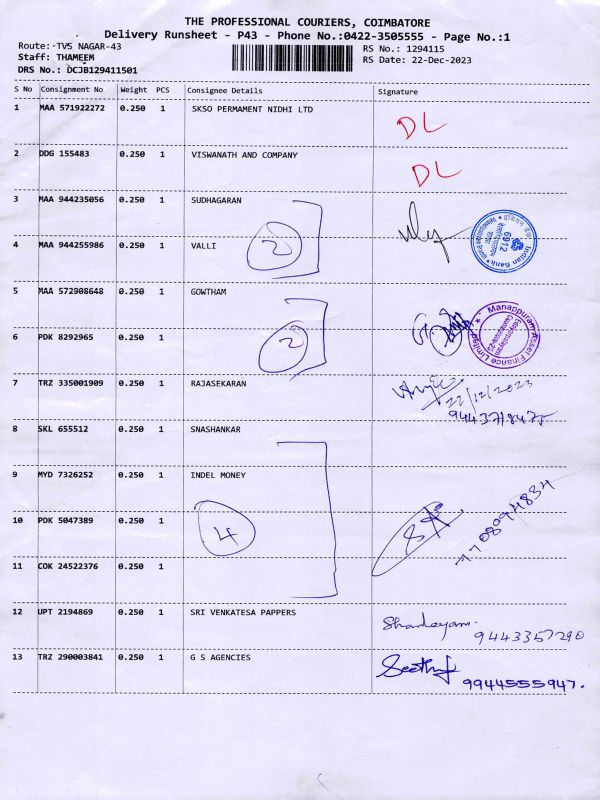 THE PROFESSIONAL COURIERS, COIMBATORE
Delivery Runsheet - P43 - Phone No.:0422-3505555 - Page No.:1
Route: TVS NAGAR-43
RS No.: 1294115
Staff: THAMEEM
RS Date: 22-Dec-2023
DRS No.: DCJB129411501
S No Consignment No Weight PCS Consignee Details Signature
1 MAA 571922272 0.250 1 SKSO PERMAMENT NIDHI LTD DL
2 DDG 155483 0.250 1 VISWANATH AND COMPANY DL
3 MAA 944235056 0.250 1 SUDHAGARAN
4 MAA 944255986 0.250 1 VALLI 2
Indian Bank
6912
5 MAA 572908648 0.250 1 GOWTHAM
6 PDK 8292965 0.250 1 2
Manappuram Asset Finance Limited
7 TRZ 335001909 0.250 1 RAJASEKARAN
22/12/2023
8 SKL 655512 0.250 1 SNASHANKAR
9 MYD 7326252 0.250 1 INDEL MONEY
10 PDK 5047389 0.250 1 4
7708994834
11 COK 24522376 0.250 1
12 UPT 2194869 0.250 1 SRI VENKATESA PAPPERS
9443357290
13 TRZ 290003841 0.250 1 G S AGENCIES
9944555947.